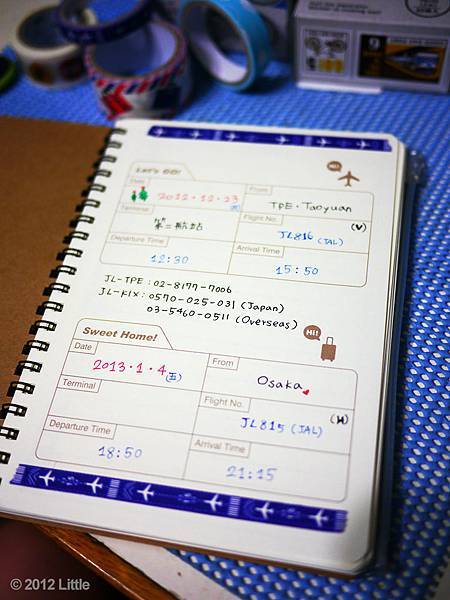 Let's GO!
Hi!
Date
2012.12.23
From
TPE. Taoyuan
Terminal
第二航站
Flight No.
(V)
JL816 (JAL)
Departure Time
12:30
Arrival Time
15:50
JL-TPE: 02-8177-7006
JL-KIX: 0570-025-031 (Japan)
03-5460-0511 (Overseas)
Sweet Home!
Hi!
Date
2013.1.4 (五)
From
Osaka
Terminal
Flight No.
(H)
JL815 (JAL)
Departure Time
18:50
Arrival Time
21:15
© 2012 Little